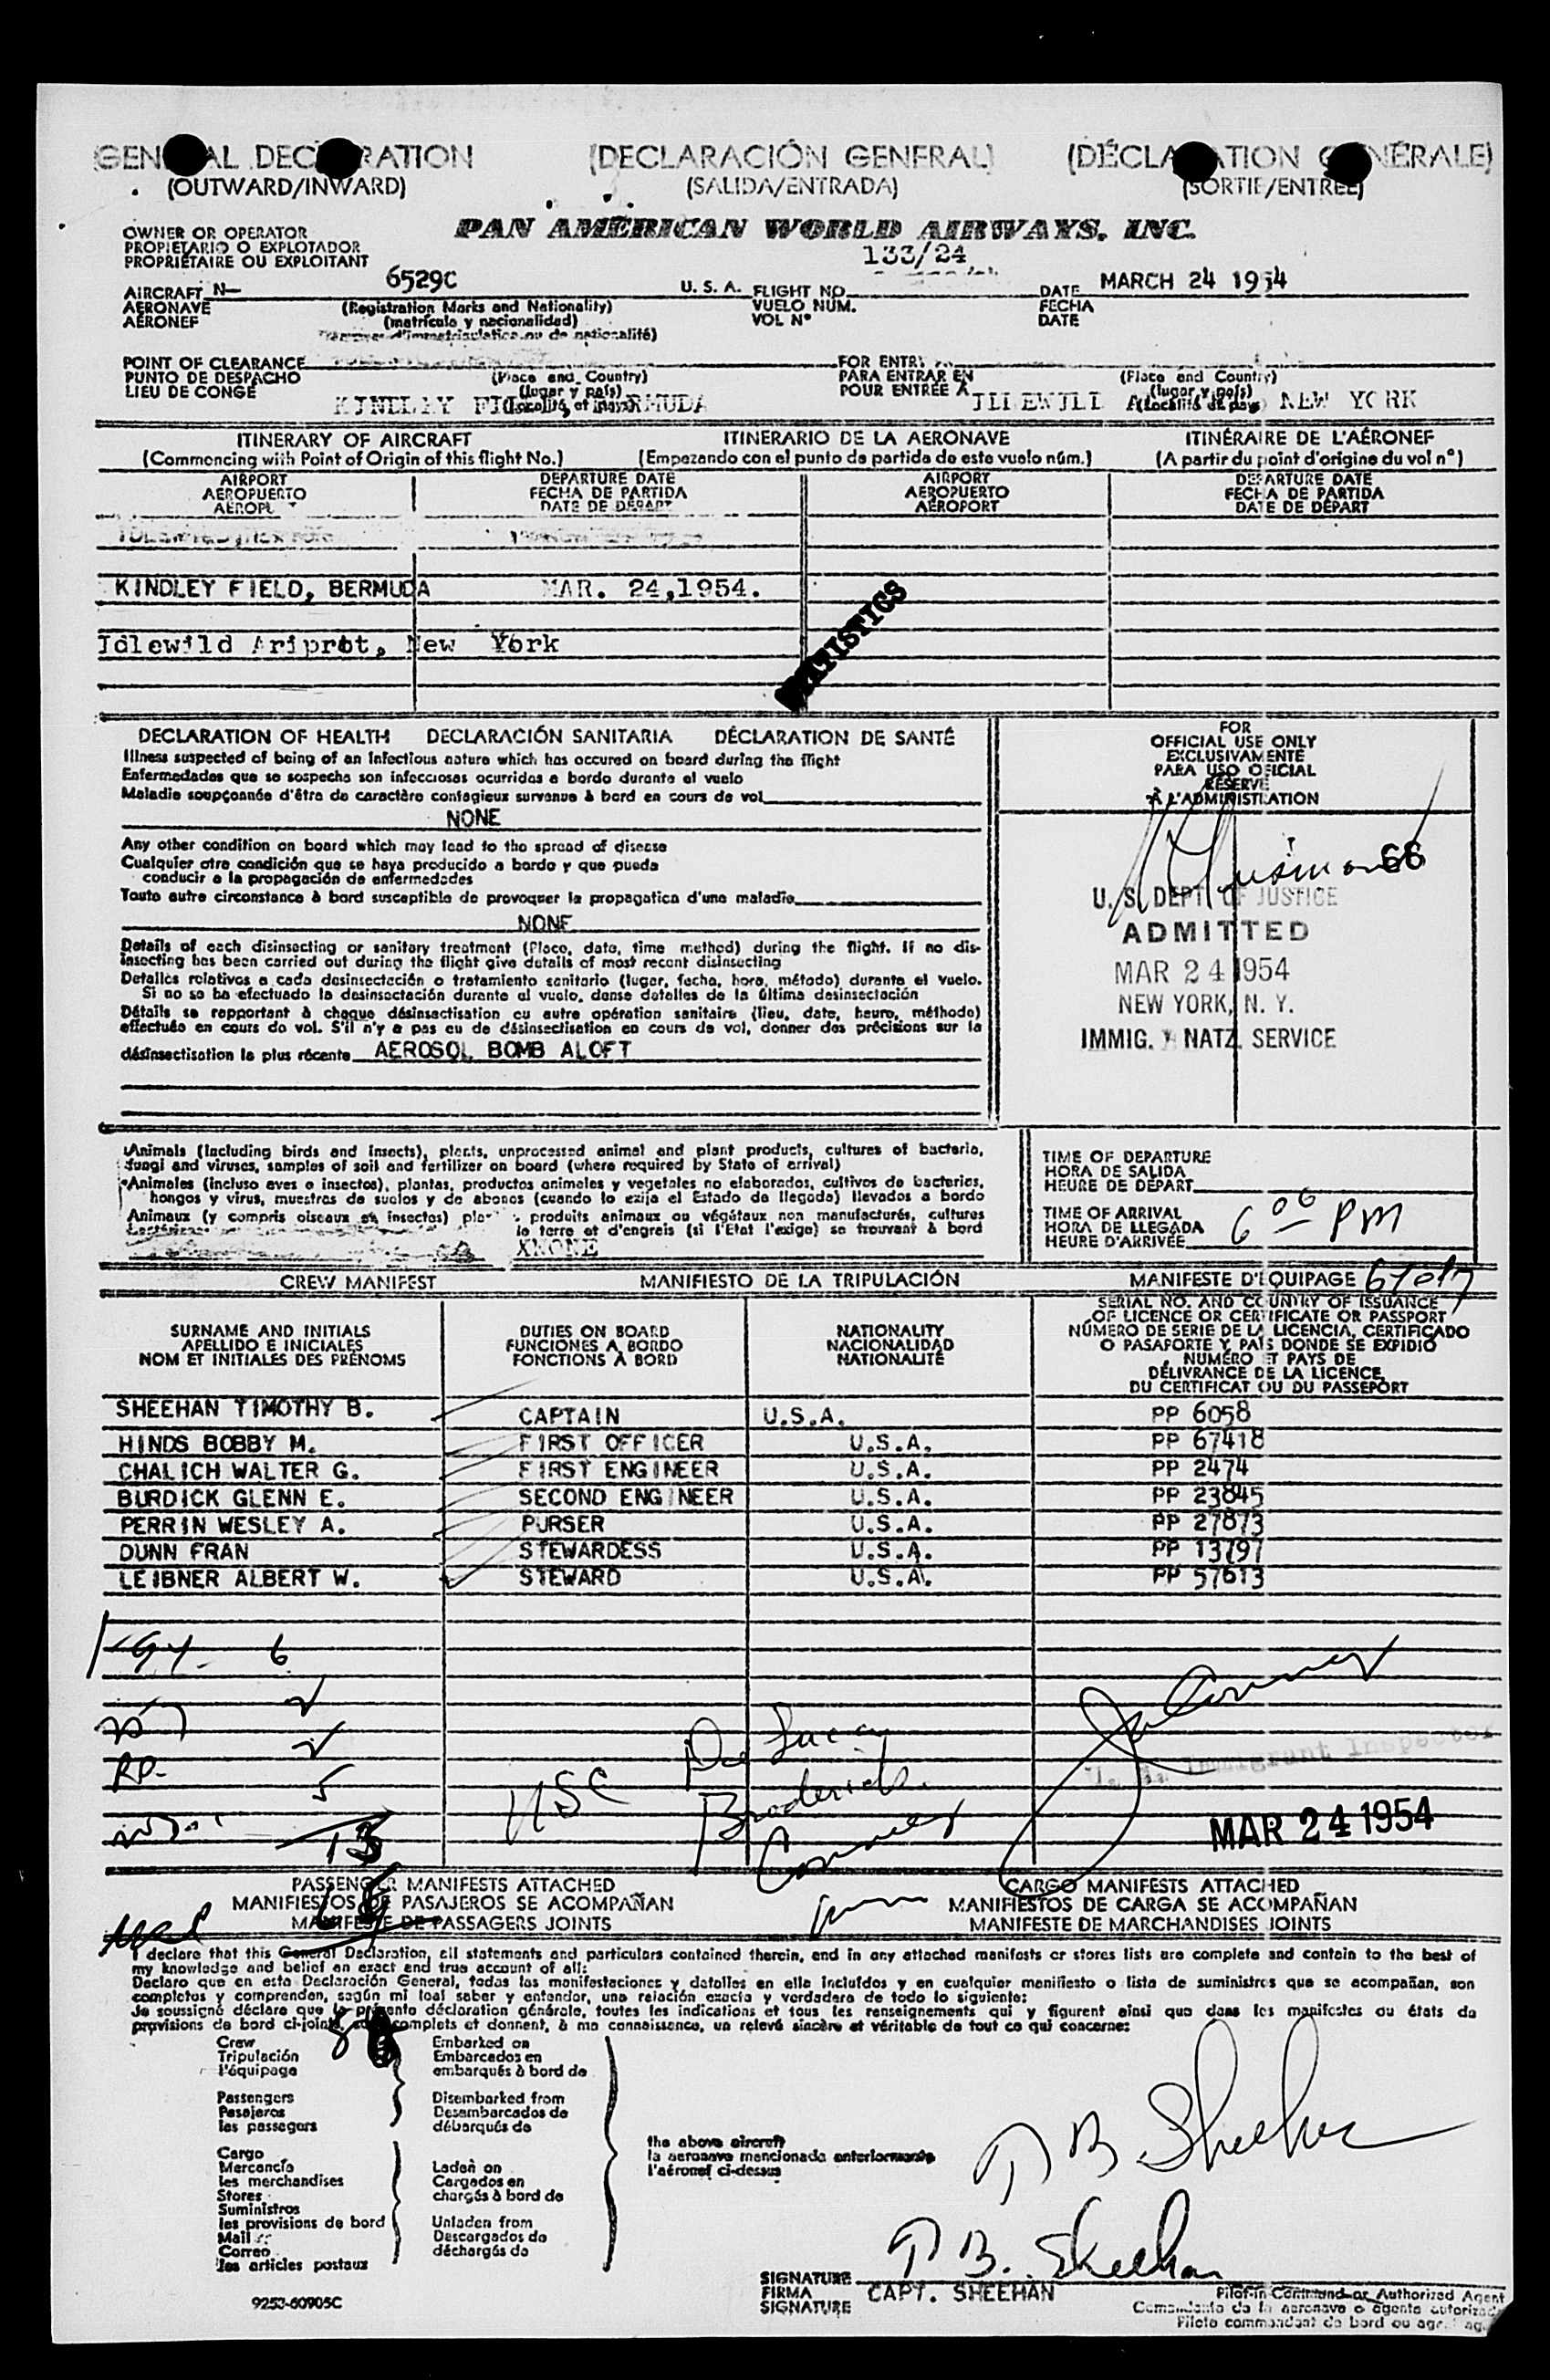 GENERAL DECLARATION (DECLARACIÓN GENERAL) (DÉCLARATION GÉNÉRALE)
(OUTWARD/INWARD) (SALIDA/ENTRADA) (SORTIE/ENTREE)
OWNER OR OPERATOR
PROPIETARIO O EXPLOTADOR
PROPRIÉTAIRE OU EXPLOITANT
PAN AMERICAN WORLD AIRWAYS, INC.
133/24
AIRCRAFT N- 6529C U. S. A. FLIGHT NO. DATE MARCH 24 1954
AERONAVE (Registration Marks and Nationality) VUELO NÚM. FECHA
AÉRONEF (matrícula y nacionalidad) VOL N° DATE
d'immatriculation ou de nationalité)
POINT OF CLEARANCE FOR ENTRY
PUNTO DE DESPACHO (Place and Country) PARA ENTRAR EN (Place and Country)
LIEU DE CONGÉ (lugar y país) POUR ENTRÉE À (lugar y país)
KINDLEY (Localité et pays) BERMUDA (Localité et pays) NEW YORK
ITINERARY OF AIRCRAFT ITINERARIO DE LA AERONAVE ITINÉRAIRE DE L'AÉRONEF
(Commencing with Point of Origin of this flight No.) (Empezando con el punto de partida de este vuelo núm.) (A partir du point d'origine du vol n°)
AIRPORT DEPARTURE DATE AIRPORT DEPARTURE DATE
AEROPUERTO FECHA DE PARTIDA AEROPUERTO FECHA DE PARTIDA
DATE DE DÉPART AÉROPORT DATE DE DÉPART
KINDLEY FIELD, BERMUDA MAR. 24,1954.
Idlewild Ariprot, New York
DECLARATION OF HEALTH DECLARACIÓN SANITARIA DÉCLARATION DE SANTÉ
Illness suspected of being of an infectious nature which has occured on board during the flight
Enfermedades que se sospecha son infecciosas ocurridas a bordo durante el vuelo
Maladie soupçonnée d'être de caractère contagieux survenue à bord en cours de vol
NONE
Any other condition on board which may lead to the spread of disease
Cualquier otra condición que se haya producido a bordo y que pueda
conducir a la propagación de enfermedades
Toute autre circonstance à bord susceptible de provoquer la propagation d'une maladie
NONE
Details of each disinsecting or sanitary treatment (Place, date, time method) during the flight. If no dis-
insecting has been carried out during the flight give details of most recent disinsecting
Detalles relativos a cada desinsectación o tratamiento sanitario (lugar, fecha, hora, método) durante el vuelo.
Si no se ha efectuado la desinsectación durante el vuelo, danse detalles de la última desinsectación
Détails se rapportant à chaque désinsectisation ou autre opération sanitaire (lieu, date, heure, méthode)
effectuée en cours de vol. S'il n'y a pas eu de désinsectisation en cours de vol, donner des précisions sur la
désinsectisation la plus récente AEROSOL BOMB ALOFT
FOR
OFFICIAL USE ONLY
EXCLUSIVAMENTE
PARA USO OFICIAL
RÉSERVÉ
À L'ADMINISTRATION
66
U. S. DEPT. OF JUSTICE
ADMITTED
MAR 24 1954
NEW YORK, N. Y.
IMMIG. & NATZ. SERVICE
Animals (including birds and insects), plants, unprocessed animal and plant products, cultures of bacteria,
fungi and viruses, samples of soil and fertilizer on board (where required by State of arrival)
Animales (incluso aves e insectos), plantas, productos animales y vegetales no elaborados, cultivos de bacterias,
hongos y virus, muestras de suelos y de abonos (cuando lo exija el Estado de llegada) llevados a bordo
Animaux (y compris oiseaux et insectes) produits animaux ou végétaux non manufacturés, cultures
terre et d'engrais (si l'Etat l'exige) se trouvant à bord
XXONE
TIME OF DEPARTURE
HORA DE SALIDA
HEURE DE DÉPART
TIME OF ARRIVAL
HORA DE LLEGADA
HEURE D'ARRIVÉE 6 00 PM
CREW MANIFEST MANIFIESTO DE LA TRIPULACIÓN MANIFESTE D'EQUIPAGE
SURNAME AND INITIALS DUTIES ON BOARD NATIONALITY
APELLIDO E INICIALES FUNCIONES A BORDO NACIONALIDAD
NOM ET INITIALES DES PRÉNOMS FONCTIONS À BORD NATIONALITÉ
SERIAL NO. AND COUNTRY OF ISSUANCE
OF LICENCE OR CERTIFICATE OR PASSPORT
NÚMERO DE SERIE DE LA LICENCIA, CERTIFICADO
O PASAPORTE Y PAÍS DONDE SE EXPIDIÓ
NUMÉRO ET PAYS DE
DÉLIVRANCE DE LA LICENCE,
DU CERTIFICAT OU DU PASSEPORT
SHEEHAN TIMOTHY B. CAPTAIN U.S.A. PP 6058
HINDS BOBBY M. FIRST OFFICER U.S.A. PP 67418
CHALICH WALTER G. FIRST ENGINEER U.S.A. PP 2474
BURDICK GLENN E. SECOND ENGINEER U.S.A. PP 23845
PERRIN WESLEY A. PURSER U.S.A. PP 27873
DUNN FRAN STEWARDESS U.S.A. PP 13797
LEIBNER ALBERT W. STEWARD U.S.A. PP 57613
6
RP-
5
USC
Broderick
U. S. Immigrant Inspector
MAR 24 1954
PASSENGER MANIFESTS ATTACHED CARGO MANIFESTS ATTACHED
MANIFIESTOS DE PASAJEROS SE ACOMPAÑAN MANIFIESTOS DE CARGA SE ACOMPAÑAN
MANIFESTE DE PASSAGERS JOINTS MANIFESTE DE MARCHANDISES JOINTS
I declare that this General Declaration, all statements and particulars contained therein, and in any attached manifests or stores lists are complete and contain to the best of
my knowledge and belief an exact and true account of all:
Declaro que en esta Declaración General, todas las manifestaciones y detalles en ella incluídos y en cualquier manifiesto o lista de suministros que se acompañan, son
completos y comprenden, según mi leal saber y entender, una relación exacta y verdadera de todo lo siguiente:
Je soussigné déclare que la présente déclaration générale, toutes les indications et tous les renseignements qui y figurent ainsi que dans les manifestes ou états de
provisions de bord ci-joints, sont complets et donnent, à ma connaissance, un relevé sincère et véritable de tout ce qui concerne:
Crew Embarked on
Tripulación Embarcados en
l'équipage embarqués à bord de
Passengers Disembarked from
Pasajeros Desembarcados de
les passagers débarqués de
the above aircraft
la aeronave mencionada anteriormente
l'aéronef ci-dessus
Cargo
Mercancía Laden on
les merchandises Cargados en
Stores chargés à bord de
Suministros
les provisions de bord Unladen from
Mail Descargados de
Correo déchargés de
les articles postaux
T B Sheehan
T B. Sheehan
SIGNATURE
FIRMA CAPT. SHEEHAN
SIGNATURE
Pilot-in-Command or Authorized Agent
Comandante de la aeronave o agente autorizado
Pilote commandant de bord ou
9253-60905C